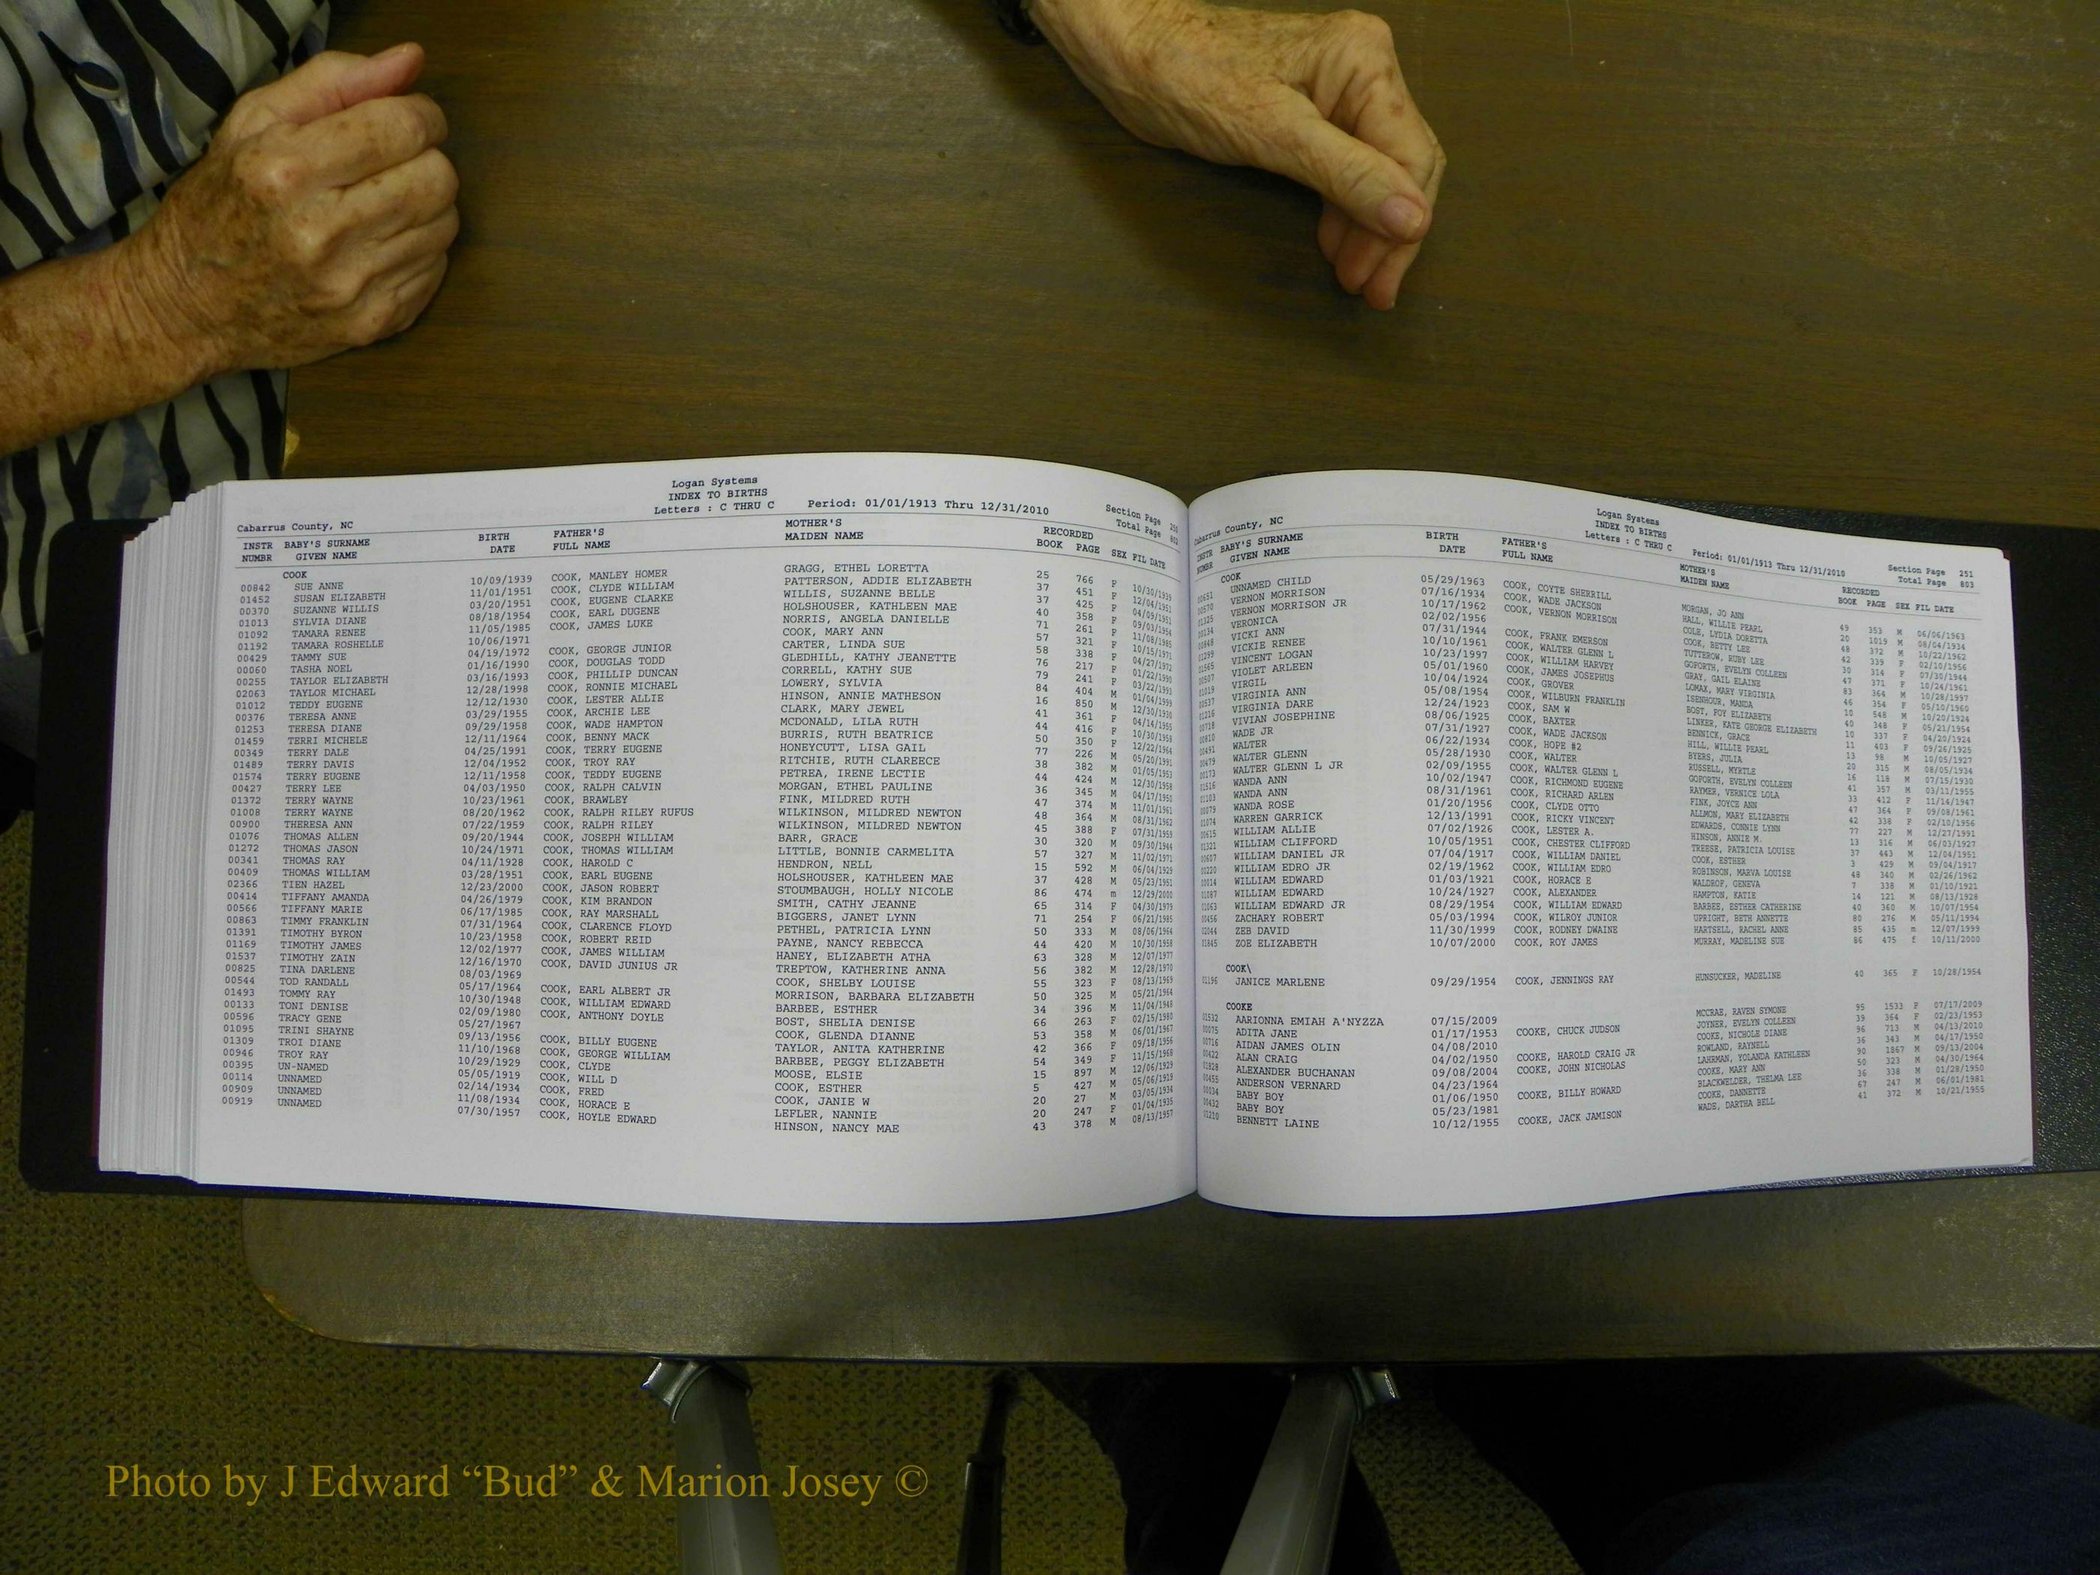 Logan Systems
INDEX TO BIRTHS
Cabarrus County, NC Letters : C THRU C Period: 01/01/1913 Thru 12/31/2010 Section Page 250
Total Page 802
INSTR BABY'S SURNAME BIRTH FATHER'S MOTHER'S RECORDED
NUMBR GIVEN NAME DATE FULL NAME MAIDEN NAME BOOK PAGE SEX FIL DATE
COOK
00842 SUE ANNE 10/09/1939 COOK, MANLEY HOMER GRAGG, ETHEL LORETTA 25 766 F 10/30/1939
01452 SUSAN ELIZABETH 11/01/1951 COOK, CLYDE WILLIAM PATTERSON, ADDIE ELIZABETH 37 451 F 12/04/1951
00370 SUZANNE WILLIS 03/20/1951 COOK, EUGENE CLARKE WILLIS, SUZANNE BELLE 37 425 F 04/09/1951
01013 SYLVIA DIANE 08/18/1954 COOK, EARL DUGENE HOLSHOUSER, KATHLEEN MAE 40 358 F 09/03/1954
01092 TAMARA RENEE 11/05/1985 COOK, JAMES LUKE NORRIS, ANGELA DANIELLE 71 261 F 11/08/1985
01192 TAMARA ROSHELLE 10/06/1971 COOK, MARY ANN 57 321 F 10/15/1971
00429 TAMMY SUE 04/19/1972 COOK, GEORGE JUNIOR CARTER, LINDA SUE 58 338 F 04/27/1972
00060 TASHA NOEL 01/16/1990 COOK, DOUGLAS TODD GLEDHILL, KATHY JEANETTE 76 217 F 01/22/1990
00255 TAYLOR ELIZABETH 03/16/1993 COOK, PHILLIP DUNCAN CORRELL, KATHY SUE 79 241 F 03/22/1993
02063 TAYLOR MICHAEL 12/28/1998 COOK, RONNIE MICHAEL LOWERY, SYLVIA 84 404 M 01/04/1999
01012 TEDDY EUGENE 12/12/1930 COOK, LESTER ALLIE HINSON, ANNIE MATHESON 16 850 M 12/30/1930
00376 TERESA ANN 03/29/1955 COOK, ARCHIE LEE CLARK, MARY JEWEL 41 361 F 04/14/1955
01253 TERESA DIANE 09/29/1958 COOK, WADE HAMPTON MCDONALD, LILA RUTH 44 416 F 10/30/1958
01459 TERRI MICHELE 12/11/1964 COOK, BENNY MACK BURRIS, RUTH BEATRICE 50 350 F 12/22/1964
00349 TERRY DALE 04/25/1991 COOK, TERRY EUGENE HONEYCUTT, LISA GAIL 77 226 M 05/20/1991
01489 TERRY DAVIS 12/04/1952 COOK, TROY RAY RITCHIE, RUTH CLAREECE 38 382 M 01/05/1953
01574 TERRY EUGENE 12/11/1958 COOK, TEDDY EUGENE PETREA, IRENE LECTIE 44 424 M 12/30/1958
00427 TERRY LEE 04/03/1950 COOK, RALPH CALVIN MORGAN, ETHEL PAULINE 36 345 M 04/17/1950
01372 TERRY WAYNE 10/23/1961 COOK, BRAWLEY FINK, MILDRED RUTH 47 374 M 11/01/1961
01008 TERRY WAYNE 08/20/1962 COOK, RALPH RILEY RUFUS WILKINSON, MILDRED NEWTON 48 364 M 08/31/1962
00900 THERESA ANN 07/22/1959 COOK, RALPH RILEY WILKINSON, MILDRED NEWTON 45 388 F 07/31/1959
01076 THOMAS ALLEN 09/20/1944 COOK, JOSEPH WILLIAM BARR, GRACE 30 320 M 09/30/1944
01272 THOMAS JASON 10/24/1971 COOK, THOMAS WILLIAM LITTLE, BONNIE CARMELITA 57 327 M 11/02/1971
00341 THOMAS RAY 04/11/1928 COOK, HAROLD C HENDRON, NELL 15 592 M 06/04/1929
00409 THOMAS WILLIAM 03/28/1951 COOK, EARL EUGENE HOLSHOUSER, KATHLEEN MAE 37 428 M 05/23/1951
02366 TIEN HAZEL 12/23/2000 COOK, JASON ROBERT STOUMBAUGH, HOLLY NICOLE 86 474 m 12/29/2000
00414 TIFFANY AMANDA 04/26/1979 COOK, KIM BRANDON SMITH, CATHY JEANNE 65 314 F 04/30/1979
00566 TIFFANY MARIE 06/17/1985 COOK, RAY MARSHALL BIGGERS, JANET LYNN 71 254 F 06/21/1985
00863 TIMMY FRANKLIN 07/31/1964 COOK, CLARENCE FLOYD PETHEL, PATRICIA LYNN 50 333 M 08/06/1964
01391 TIMOTHY BYRON 10/23/1958 COOK, ROBERT REID PAYNE, NANCY REBECCA 44 420 M 10/30/1958
01169 TIMOTHY JAMES 12/02/1977 COOK, JAMES WILLIAM HANEY, ELIZABETH ATHA 63 328 M 12/07/1977
01537 TIMOTHY ZAIN 12/16/1970 COOK, DAVID JUNIUS JR TREPTOW, KATHERINE ANNA 56 382 M 12/28/1970
00825 TINA DARLENE 08/03/1969 COOK, SHELBY LOUISE 55 323 F 08/13/1969
00544 TOD RANDALL 05/17/1964 COOK, EARL ALBERT JR MORRISON, BARBARA ELIZABETH 50 325 M 05/21/1964
01493 TOMMY RAY 10/30/1948 COOK, WILLIAM EDWARD BARBEE, ESTHER 34 396 M 11/04/1948
00133 TONI DENISE 02/09/1980 COOK, ANTHONY DOYLE BOST, SHELIA DENISE 66 263 F 02/15/1980
00596 TRACY GENE 05/27/1967 COOK, GLENDA DIANNE 53 358 M 06/01/1967
01095 TRINI SHAYNE 09/13/1956 COOK, BILLY EUGENE TAYLOR, ANITA KATHERINE 42 366 F 09/18/1956
01309 TROI DIANE 11/10/1968 COOK, GEORGE WILLIAM BARBEE, PEGGY ELIZABETH 54 349 F 11/15/1968
00946 TROY RAY 10/29/1929 COOK, CLYDE MOOSE, ELSIE 15 897 M 12/06/1929
00395 UN-NAMED 05/05/1919 COOK, WILL D COOK, ESTHER 5 427 M 05/06/1919
00114 UNNAMED 02/14/1934 COOK, FRED COOK, JANIE W 20 27 M 03/05/1934
00909 UNNAMED 11/08/1934 COOK, HORACE E LEFLER, NANNIE 20 247 F 01/04/1935
00919 UNNAMED 07/30/1957 COOK, HOYLE EDWARD HINSON, NANCY MAE 43 378 M 08/13/1957
Logan Systems
INDEX TO BIRTHS
Cabarrus County, NC Letters : C THRU C Period: 01/01/1913 Thru 12/31/2010 Section Page 251
Total Page 803
INSTR BABY'S SURNAME BIRTH FATHER'S MOTHER'S RECORDED
NUMBR GIVEN NAME DATE FULL NAME MAIDEN NAME BOOK PAGE SEX FIL DATE
COOK
00651 UNNAMED CHILD 05/29/1963 COOK, COYTE SHERRILL MORGAN, JO ANN 49 353 M 06/06/1963
00570 VERNON MORRISON 07/16/1934 COOK, WADE JACKSON HALL, WILLIE PEARL 20 1019 M 08/04/1934
01325 VERNON MORRISON JR 10/17/1962 COOK, VERNON MORRISON COLE, LYDIA DORETTA 48 372 M 10/22/1962
00134 VERONICA 02/02/1956 COOK, BETTY LEE 42 339 F 02/10/1956
00848 VICKI ANN 07/31/1944 COOK, FRANK EMERSON TUTTEROW, RUBY LEE 30 314 F 07/30/1944
01299 VICKIE RENEE 10/10/1961 COOK, WALTER GLENN L GOFORTH, EVELYN COLLEEN 47 371 F 10/24/1961
01565 VINCENT LOGAN 10/23/1997 COOK, WILLIAM HARVEY GRAY, GAIL ELAINE 83 364 M 10/28/1997
00507 VIOLET ARLEEN 05/01/1960 COOK, JAMES JOSEPHUS LOMAX, MARY VIRGINIA 46 354 F 05/10/1960
01019 VIRGIL 10/04/1924 COOK, GROVER ISENHOUR, MANDA 10 548 M 10/20/1924
00537 VIRGINIA ANN 05/08/1954 COOK, WILBURN FRANKLIN BOST, FOY ELIZABETH 40 348 F 05/21/1954
01216 VIRGINIA DARE 12/24/1923 COOK, SAM W LINKER, KATE GEORGE ELIZABETH 10 337 F 04/20/1924
00718 VIVIAN JOSEPHINE 08/06/1925 COOK, BAXTER BENNICK, GRACE 11 403 F 09/26/1925
00810 WADE JR 07/31/1927 COOK, WADE JACKSON HILL, WILLIE PEARL 13 98 M 10/05/1927
00491 WALTER 06/22/1934 COOK, HOPE #2 BYERS, JULIA 20 315 M 08/05/1934
00479 WALTER GLENN 05/28/1930 COOK, WALTER RUSSELL, MYRTLE 16 118 M 07/15/1930
00173 WALTER GLENN L JR 02/09/1955 COOK, WALTER GLENN L GOFORTH, EVELYN COLLEEN 41 357 M 03/11/1955
01516 WANDA ANN 10/02/1947 COOK, RICHMOND EUGENE RAYMER, VERNICE LOLA 33 412 F 11/14/1947
01103 WANDA ANN 08/31/1961 COOK, RICHARD ARLEN FINK, JOYCE ANN 47 364 F 09/08/1961
00079 WANDA ROSE 01/20/1956 COOK, CLYDE OTTO ALLMON, MARY ELIZABETH 42 338 F 02/10/1956
01074 WARREN GARRICK 12/13/1991 COOK, RICKY VINCENT EDWARDS, CONNIE LYNN 77 227 M 12/27/1991
00615 WILLIAM ALLIE 07/02/1926 COOK, LESTER A. HINSON, ANNIE M. 13 316 M 06/03/1927
01321 WILLIAM CLIFFORD 10/05/1951 COOK, CHESTER CLIFFORD TREESE, PATRICIA LOUISE 37 443 M 12/04/1951
00607 WILLIAM DANIEL JR 07/04/1917 COOK, WILLIAM DANIEL COOK, ESTHER 3 429 M 09/04/1917
01220 WILLIAM EDRO JR 02/19/1962 COOK, WILLIAM EDRO ROBINSON, MAEVA LOUISE 48 340 M 02/26/1962
00014 WILLIAM EDWARD 01/03/1921 COOK, HORACE E WALDROF, GENEVA 7 338 M 01/10/1921
01087 WILLIAM EDWARD 10/24/1927 COOK, ALEXANDER HAMPTON, KATIE 14 121 M 08/13/1928
01063 WILLIAM EDWARD JR 08/29/1954 COOK, WILLIAM EDWARD BARBEE, ESTHER CATHERINE 40 360 M 10/07/1954
00456 ZACHARY ROBERT 05/03/1994 COOK, WILROY JUNIOR UPRIGHT, BETH ANNETTE 80 276 M 05/11/1994
02044 ZEB DAVID 11/30/1999 COOK, RODNEY DWAINE HARTSELL, RACHEL ANNE 85 435 m 12/07/1999
01845 ZOE ELIZABETH 10/07/2000 COOK, ROY JAMES MURRAY, MADELINE SUE 86 475 f 10/11/2000
COOK\
01196 JANICE MARLENE 09/29/1954 COOK, JENNINGS RAY HUNSUCKER, MADELINE 40 365 F 10/28/1954
COOKE
01532 AARIONNA EMIAH A'NYZZA 07/15/2009 MCCRAE, RAVEN SYMONE 95 1533 F 07/17/2009
00075 ADITA JANE 01/17/1953 COOKE, CHUCK JUDSON JOYNER, EVELYN COLLEEN 39 364 F 02/23/1953
00716 AIDAN JAMES OLIN 04/08/2010 COOKE, NICHOLE DIANE 96 713 M 04/13/2010
00422 ALAN CRAIG 04/02/1950 COOKE, HAROLD CRAIG JR ROWLAND, RAYNELL 36 343 M 04/17/1950
01928 ALEXANDER BUCHANAN 09/08/2004 COOKE, JOHN NICHOLAS LAHRMAN, YOLANDA KATHLEEN 90 1867 M 09/13/2004
00455 ANDERSON VERNARD 04/23/1964 COOKE, MARY ANN 50 323 M 04/30/1964
00034 BABY BOY 01/06/1950 COOKE, BILLY HOWARD BLACKWELDER, THELMA LEE 36 338 M 01/28/1950
00432 BABY BOY 05/23/1981 COOKE, DANNETTE 67 247 M 06/01/1981
01210 BENNETT LAINE 10/12/1955 COOKE, JACK JAMISON WADE, DARTHA BELL 41 372 M 10/21/1955
Photo by J Edward “Bud” & Marion Josey ©